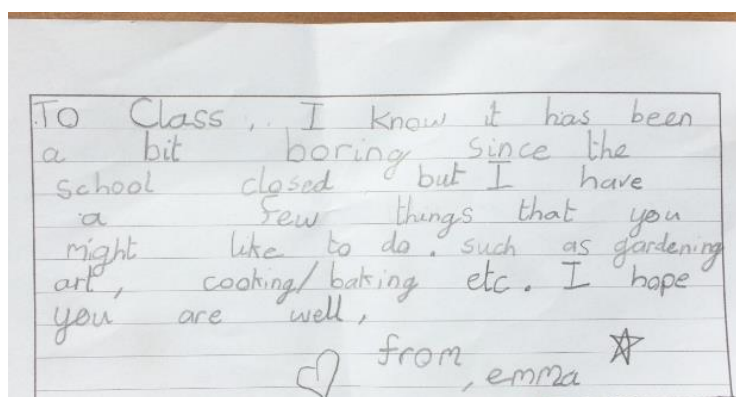 To Class, I know it has been
a bit boring since the
school closed but I have
a few things that you
might like to do. such as gardening
art, cooking/baking etc. I hope
you are well,
from
, emma